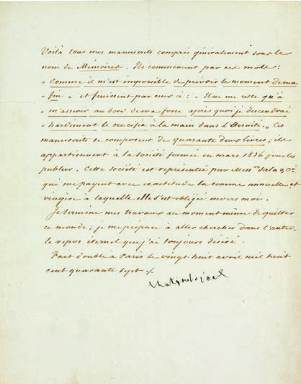 Voilà tous mes manuscrits compris généralement sous le
nom de Mémoires. Ils commencent par ces mots:
« Comme il m'est impossible de prévoir le moment de ma
fin » et finissent par ceux-ci: « Il ne me reste qu'à
m'asseoir au bord de ma fosse après quoi je descendrai
hardiment le crucifix à la main dans l'Eternité. » Ces
manuscrits se composent de quarante deux livres, ils
appartiennent à la Société formée en mars 1836 pour les
publier. Cette Société est représentée par Mess.
qui me payent avec exactitude la somme annuelle et
viagère à laquelle elle s'est obligée envers moi.
Je termine mes travaux au moment même de quitter
ce monde, je me prépare à aller chercher dans l'autre
le repos éternel que j'ai toujours désiré.
Fait double à Paris le vingt huit avril mil huit
cent quarante sept